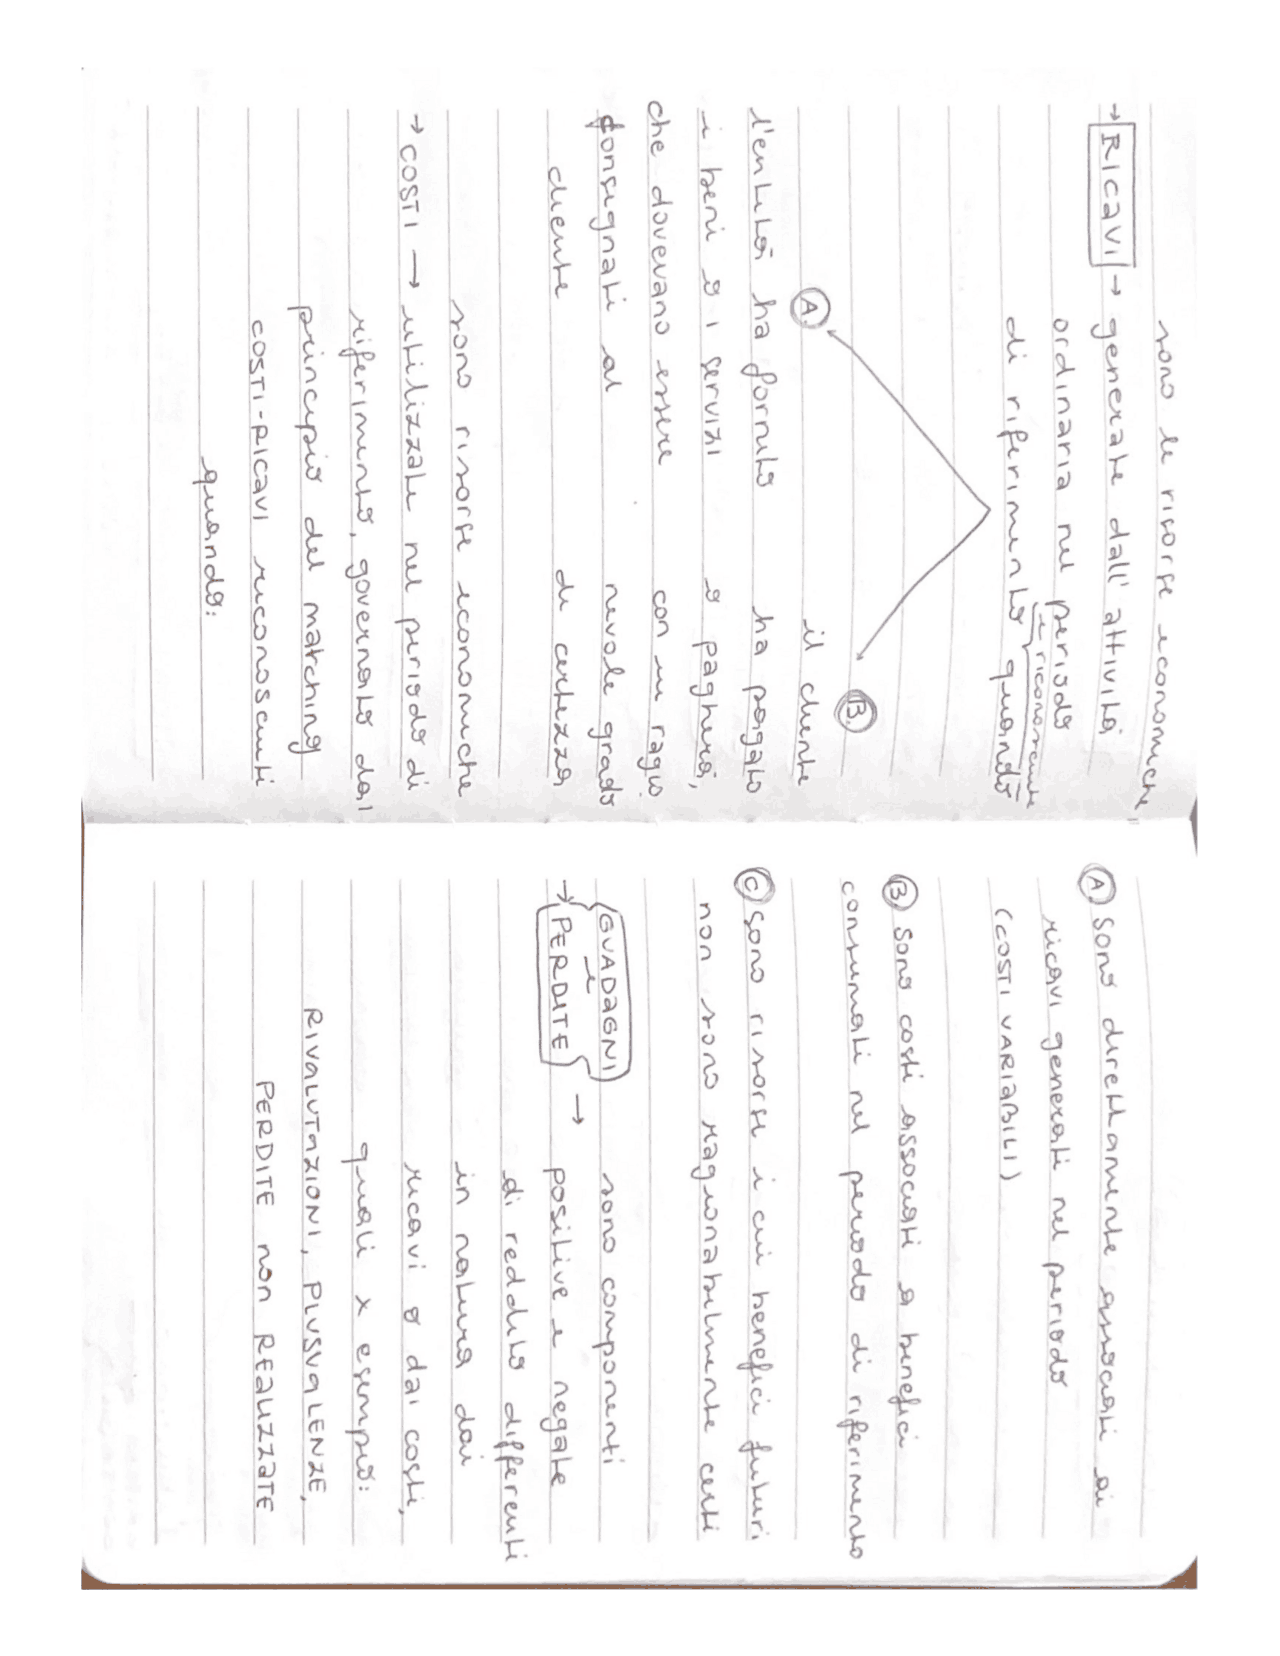 sono le risorse economiche
→ RICAVI → generate dall' attività
ordinaria nel periodo
e riconosciute
di riferimento quando
A.
B.
l'entità ha fornito
i beni o i servizi
che dovevano essere
consegnati al
cliente
il cliente
ha pagato
o pagherà,
con un ragio
nevole grado
di certezza
sono risorse economiche
→ COSTI → utilizzate nel periodo di
riferimento, governato dal
principio del matching
COSTI-RICAVI riconosciuti
quando:
A. sono direttamente associati ai
ricavi generati nel periodo
(COSTI VARIABILI)
B. sono costi associati a benefici
consumati nel periodo di riferimento
C sono risorse i cui benefici futuri
non sono ragionabilmente certi
GUADAGNI
e
→ PERDITE →
sono componenti
positive e negate
di reddito differenti
in natura dai
ricavi o dai costi,
quali x esempio:
RIVALUTAZIONI, PLUSVALENZE,
PERDITE non REALIZZATE